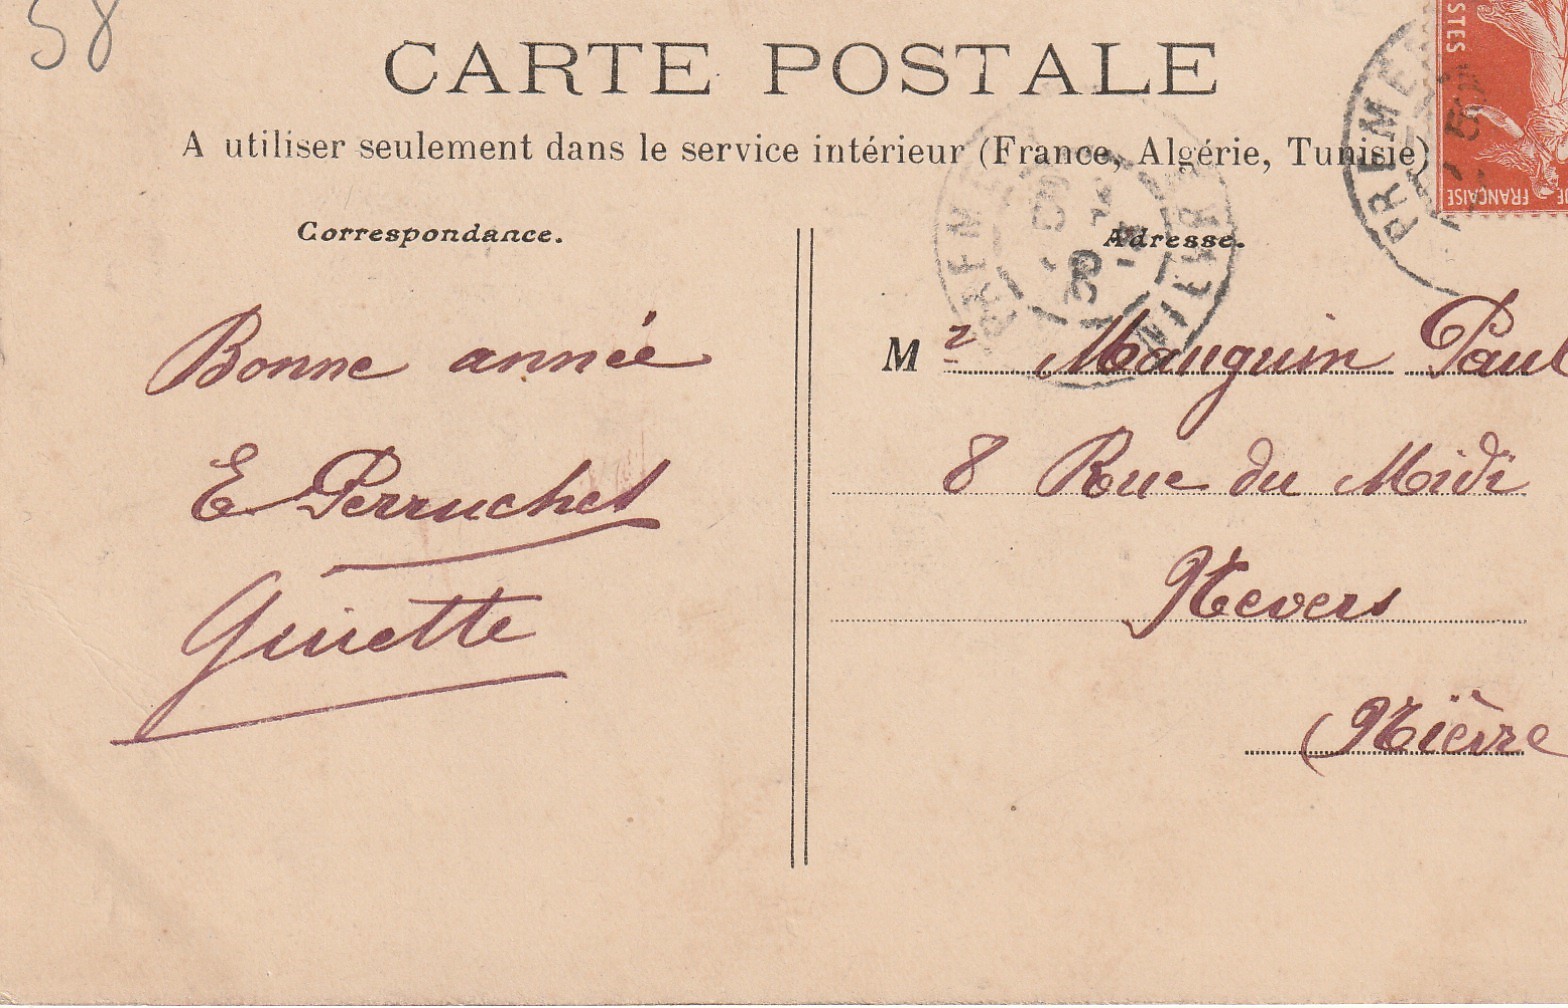 58
CARTE POSTALE
A utiliser seulement dans le service intérieur (France, Algérie, Tunisie)
Correspondance.
Adresse.
Bonne année
E Perruchet
M r Mauguin Paul
8 Rue du Midi
Nevers
(Nièvre
PREME
STES
FRANÇAISE